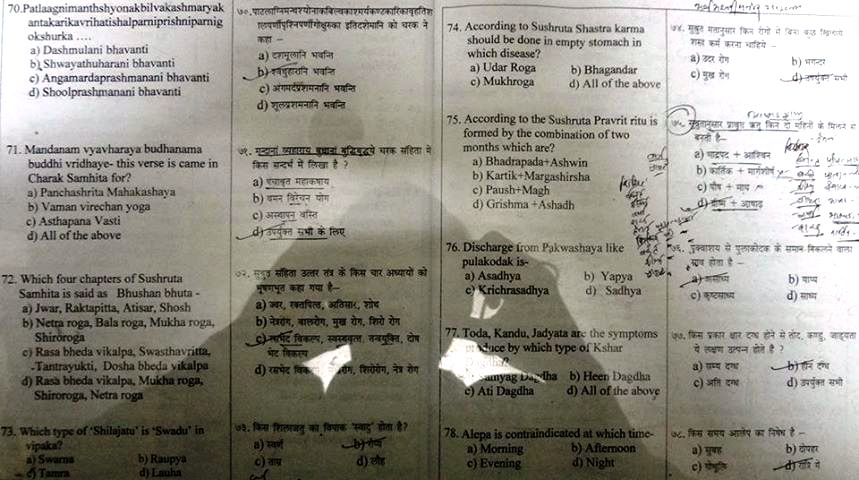 70.Patlaagnimanthshyonakbilvakashmaryak
antakarikavrihatishalparniprishniparnig
okshurka ….
a) Dashmulani bhavanti
b) Shwayathuharani bhavanti
c) Angamardaprashmanani bhavanti
d) Shoolprashmanani bhavanti
71. Mandanam vyavharaya budhanama
buddhi vridhaye- this verse is came in
Charak Samhita for?
a) Panchashrita Mahakashaya
b) Vaman virechan yoga
c) Asthapana Vasti
d) All of the above
72. Which four chapters of Sushruta
Samhita is said as Bhushan bhuta -
a) Jwar, Raktapitta, Atisar, Shosh
b) Netra roga, Bala roga, Mukha roga,
Shiroroga
c) Rasa bheda vikalpa, Swasthavritta,
-Tantrayukti, Dosha bheda vikalpa
d) Rasa bheda vikalpa, Mukha roga,
Shiroroga, Netra roga
73. Which type of 'Shilajatu' is 'Swadu' in
vipaka?
a) Swarna b) Raupya
c) Tamra d) Lauha
कहा –
a) दशमूलानि भवन्ति
b) श्वयथुहराणि भवन्ति
c) अंगमर्दप्रशमनानि भवन्ति
d) शूलप्रशमनानि भवन्ति
७१. मन्दानां व्यवहाराय बुधानां बुद्धिवृद्धये चरक संहिता में
किस सन्दर्भ में लिखा है ?
a) पंचाश्रृत महाकषाय
b) वमन विरेचन योग
c) अस्थापन वस्ति
d) उपर्युक्त सभी के लिए
७२. सुश्रुत संहिता उत्तर तंत्र के किस चार अध्यायों को
भूषणभूत कहा गया है–
a) ज्वर, रक्तपित्त, अतिसार, शोष
b) नेत्ररोग, बालरोग, मुख रोग, शिरो रोग
c) रसभेद विकल्प, स्वस्थवृत्त, तन्त्रयुक्ति, दोष
भेद विकल्प
d) रसभेद शिरोरोग, नेत्र रोग
७३. किस शिलाजतु का विपाक 'स्वादु' होता है?
a) स्वर्ण b) रौप्य
c) ताम्र d) लौह
74. According to Sushruta Shastra karma
should be done in empty stomach in
which disease?
a) Udar Roga b) Bhagandar
c) Mukhroga d) All of the above
75. According to the Sushruta Pravrit ritu is
formed by the combination of two
months which are?
a) Bhadrapada+Ashwin
b) Kartik+Margashirsha
c) Paush+Magh
d) Grishma +Ashadh
76. Discharge from Pakwashaya like
pulakodak is-
a) Asadhya b) Yapya
c) Krichrasadhya d) Sadhya
77. Toda, Kandu, Jadyata are the symptoms
produce by which type of Kshar
Dagdha b) Heen Dagdha
c) Ati Dagdha d) All of the above
78. Alepa is contraindicated at which time-
a) Morning b) Afternoon
c) Evening d) Night
७४. सुश्रुत मतानुसार किन रोगो में बिना कुछ खिलाये
शस्त्र कर्म करना चाहिये –
a) उदर रोग b) भगन्दर
c) मुख रोग d) उपर्युक्त सभी
७५. सुश्रुतानुसार प्रावृट ऋतु किन दो महिनों के मिलने से
बनती है–
a) भाद्रपद + आश्विन
b) कार्तिक + मार्गशीर्ष
c) पौष + माघ
d) ग्रीष्म + आषाढ़
७६. पुक्वाशय से पुलाकोदक के समान निकलने वाला
स्राव होता है –
a) असाध्य b) याप्य
c) कृच्छ्रसाध्य d) साध्य
७७. किस प्रकार क्षार दग्ध होने से तोद, कण्डु, जाड्यता
ये लक्षण उत्पन्न होते है ?
a) सम्यग् दग्ध b) हीन दग्ध
c) अति दग्ध d) उपर्युक्त सभी
७८. किस समय आलेप का निषेध है –
a) सुबह b) दोपहर
c) गोधूलि d) रात्रि में